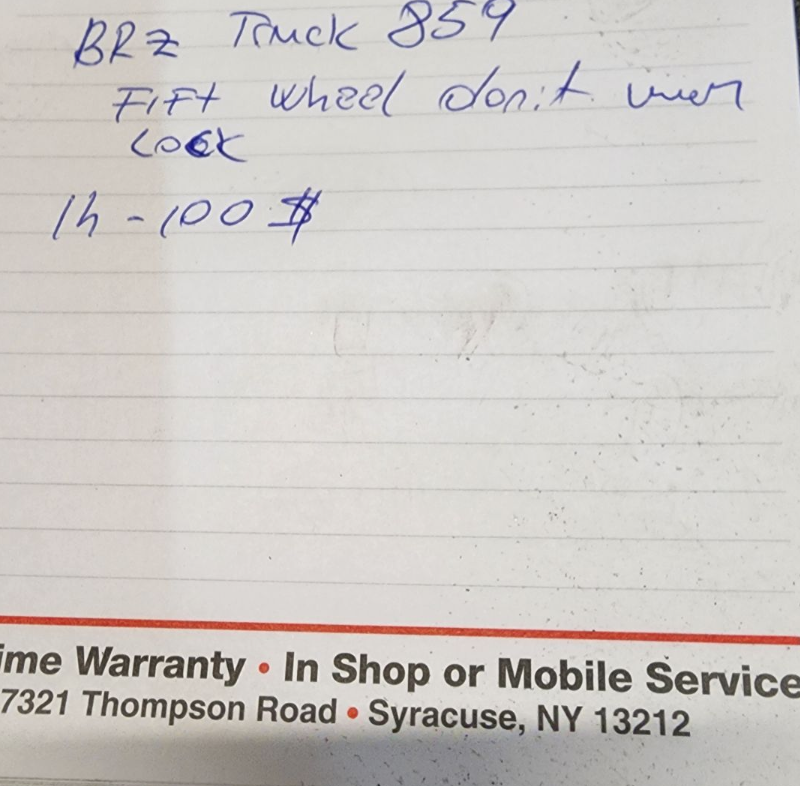 BRZ Truck 859
FIFt wheel don't
LOCK
1h - 100 $
ime Warranty • In Shop or Mobile Service
7321 Thompson Road • Syracuse, NY 13212